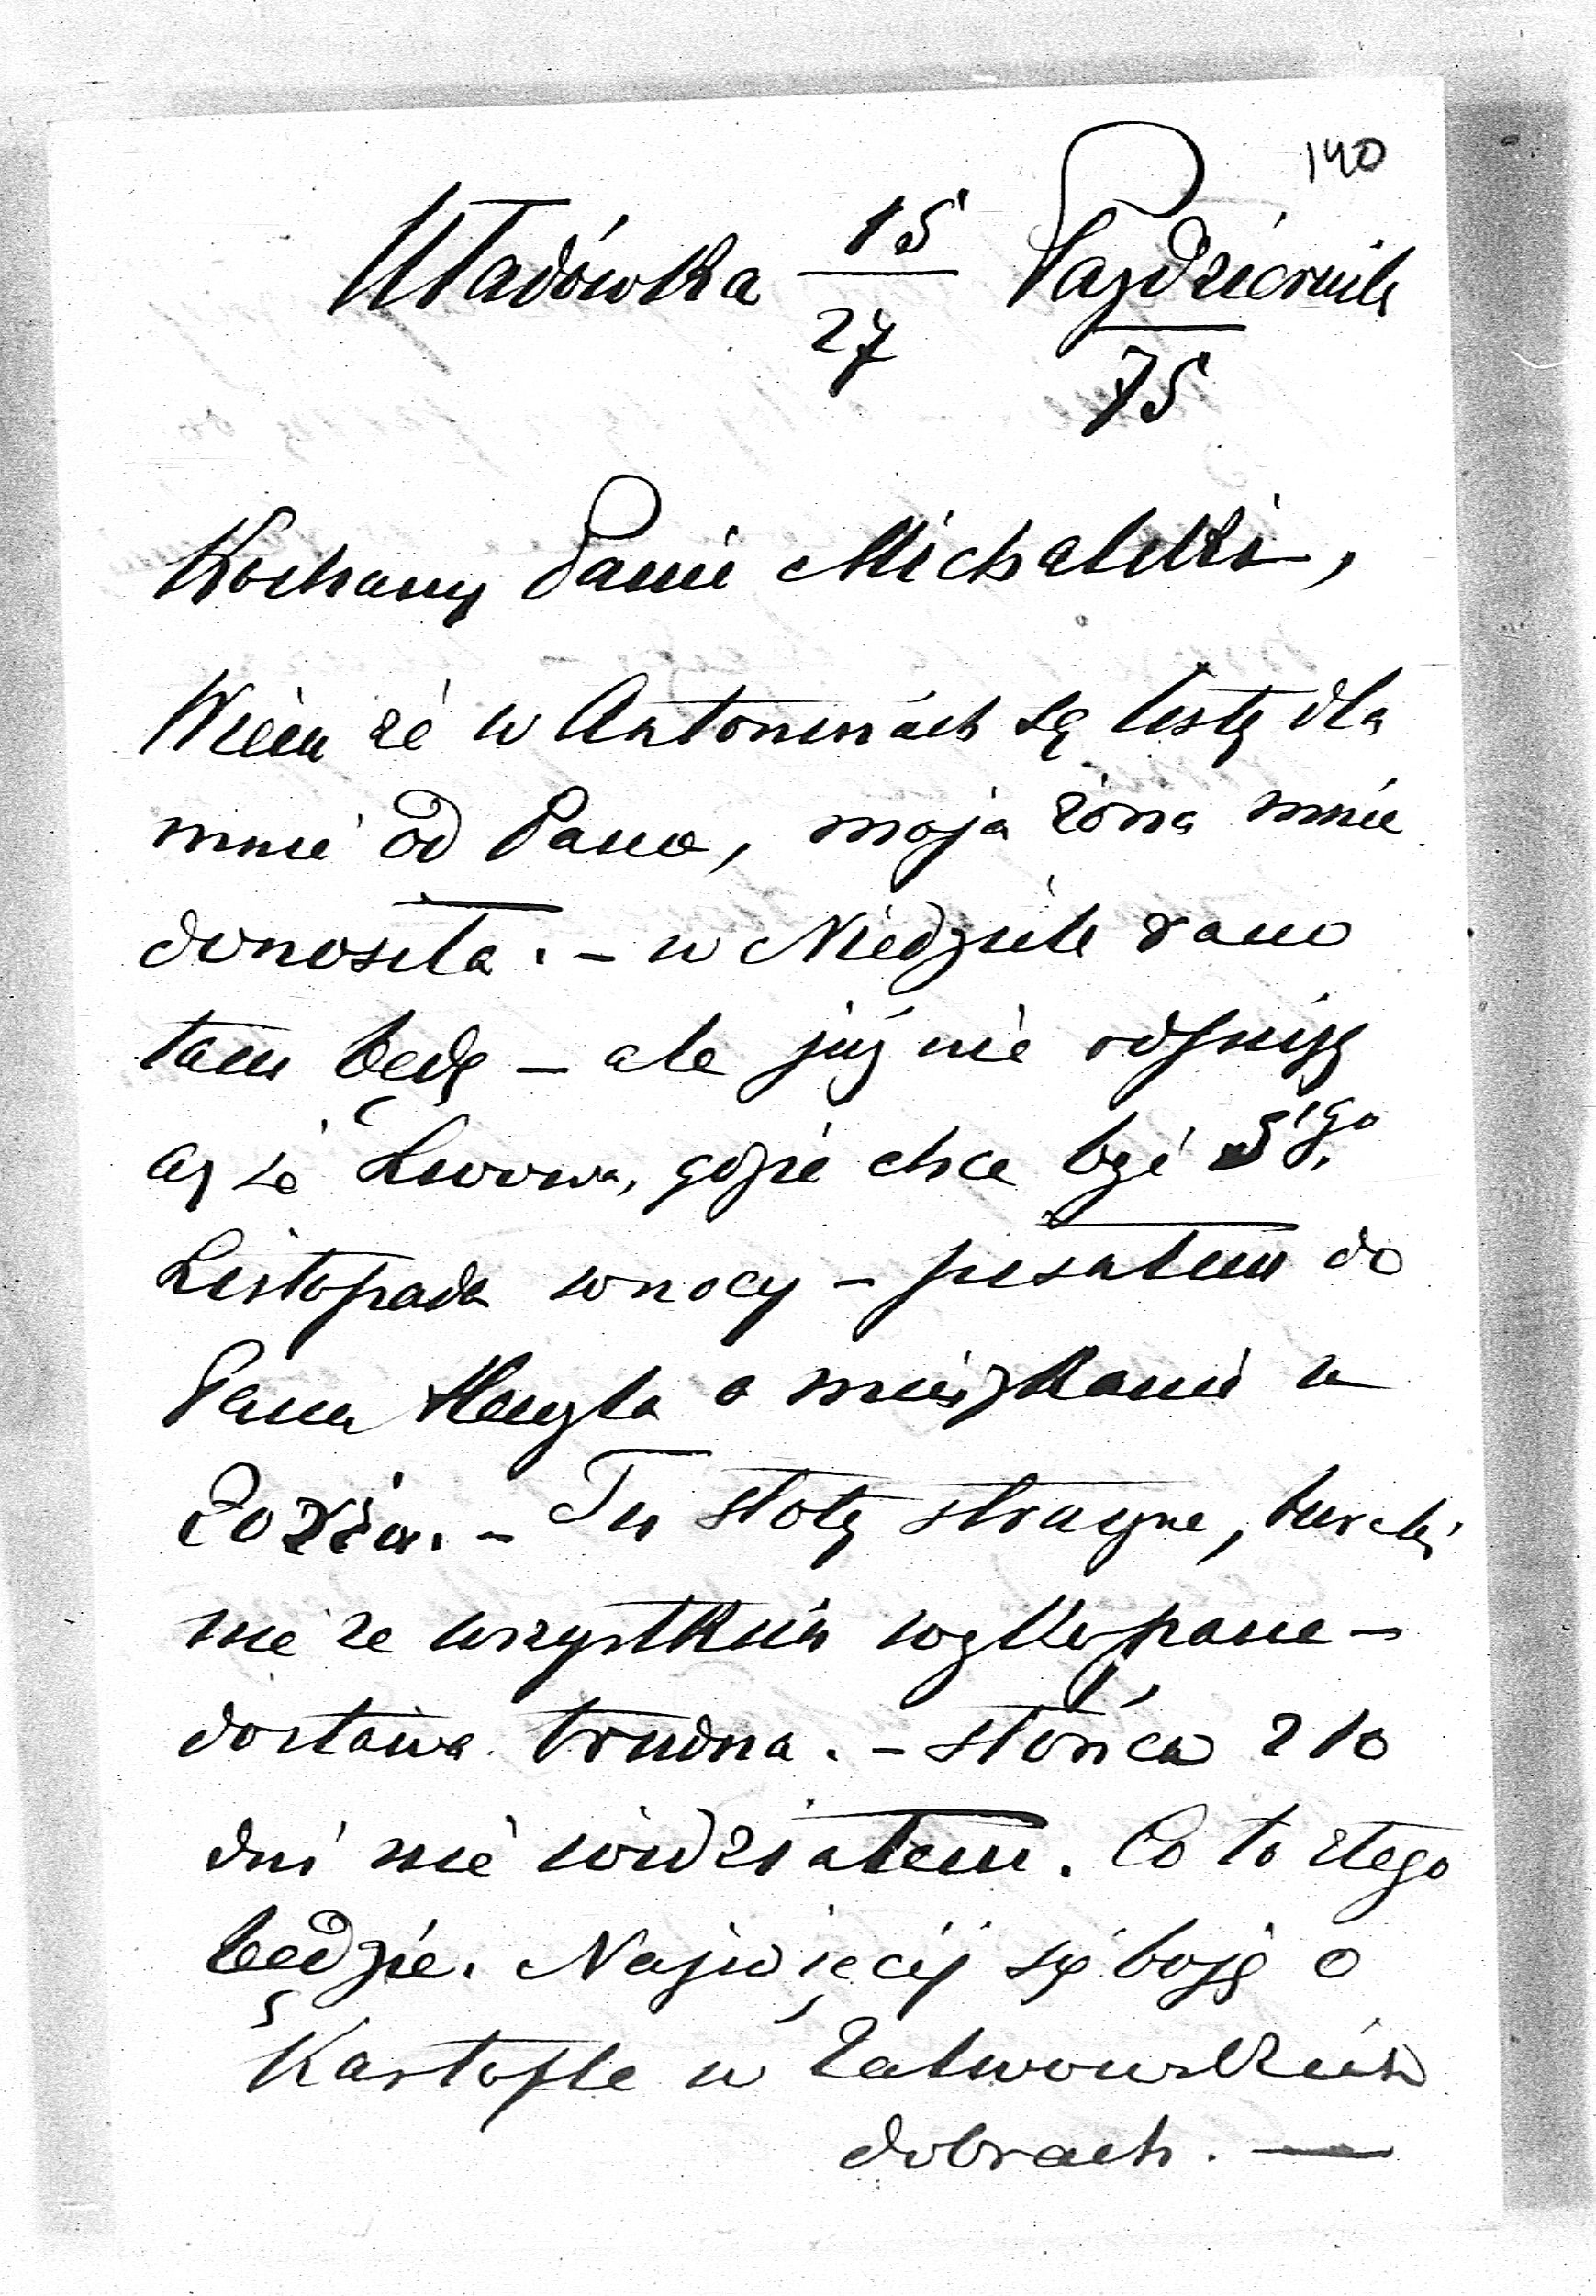 140
Uładówka 15/27 Październik
75
Kochany Panie Michalski,
Wiem że w Antoninach są listy dla
mnie od Pana, moja żona mnie
donosiła. – w Niedziele rano
tam będę – ale już nie odpiszę
aż ze Lwowa, gdzie chce być 5go
Listopada w nocy – pisałem do
Pana o mieszkanie u
Żorża. – Tu słoty straszne, buraki
nie ze wszystkiem wykopane –
dostawa trudna. – słońca z 10
dni nie widziałem. Co to z tego
będzie. Najwięcej się boję o
Kartofle w
dobrach. —